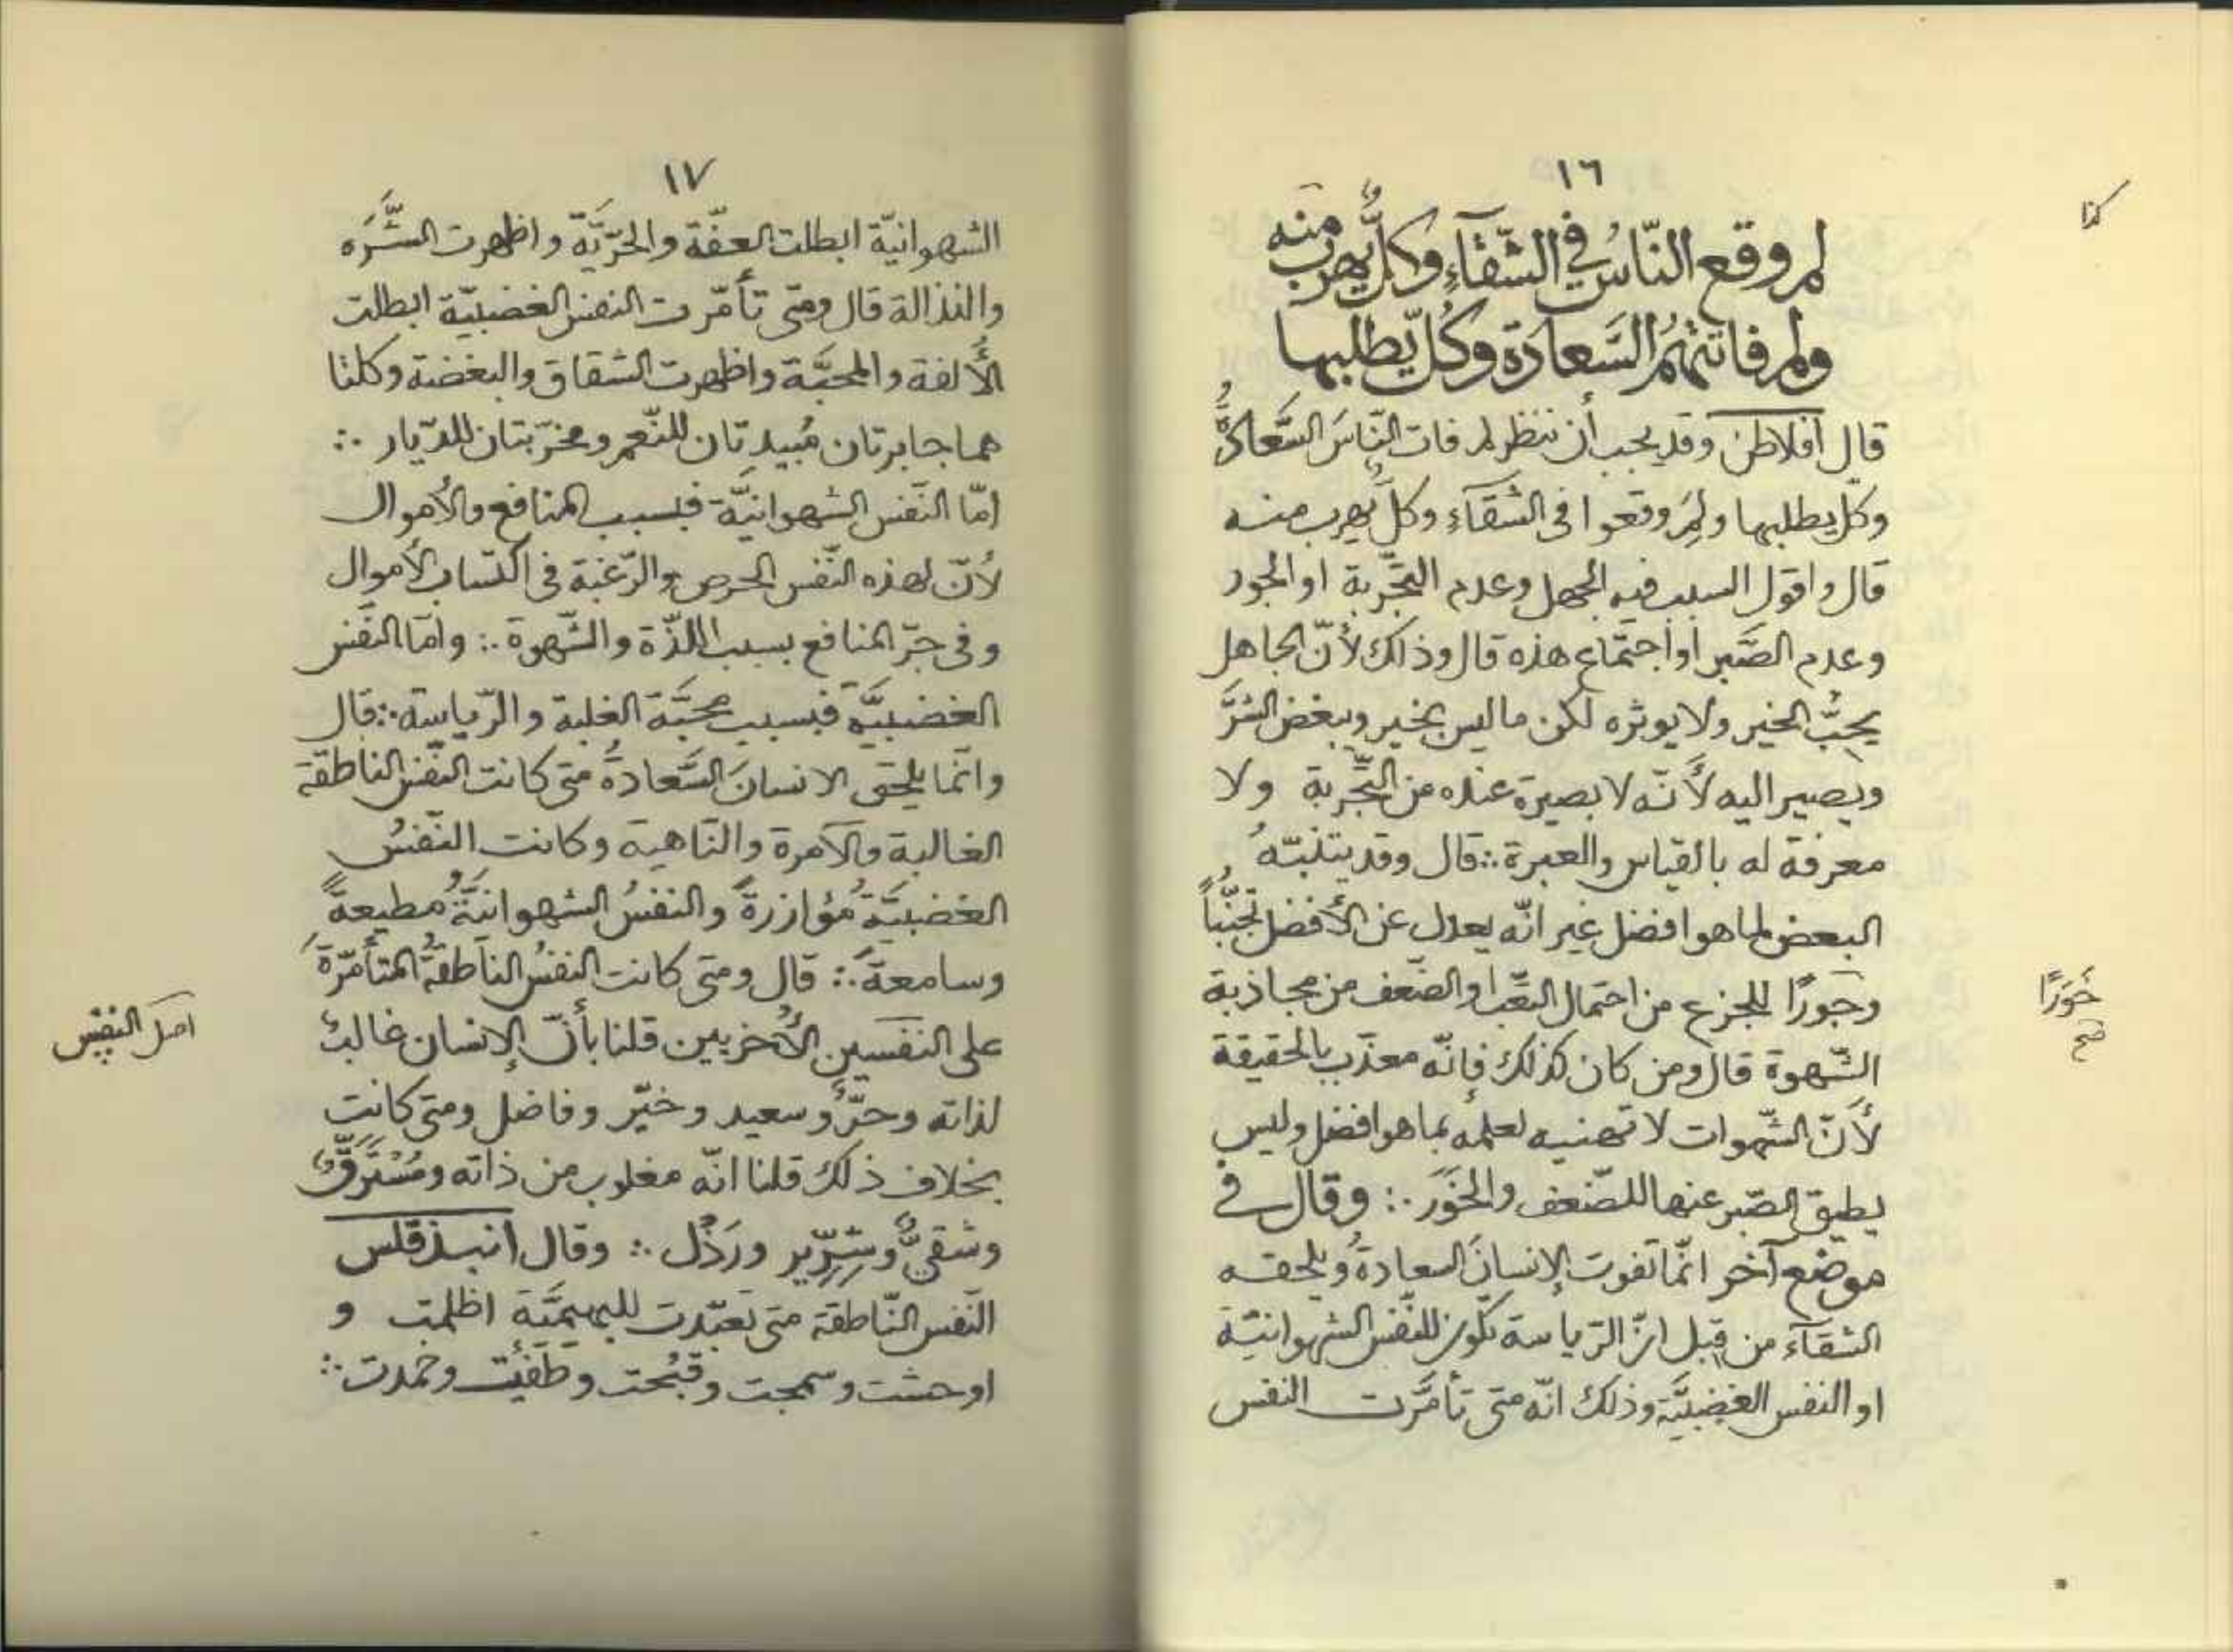 ١٦
كذا
لم وقع النّاسُ في الشّقآءِ وكلٌّ يهرب منه
ولم فاتتهُمُ السَّعادَة وكُلّ يطلبها
قال افلاطن وقد يجب أن ننظر لم فات النّاسَ السَّعادةُ
وكل يطلبها ولِمَ وقعوا فى الشَّقَآءِ وكلٌ يهرب منه
قال واقول السبب فيه الجهل وعدم التَّجرِبة او الجور
وعدم الصَّبر او اجتماع هذه قال وذلك لأنّ الجاهل
يحِبُّ الخير ولا يوثره لكن ما ليس بخير ويبغض الشرَّ
ويصير اليه لأَنّه لا بصيرة عنده من التَّجرِبة ولا
معرفة له بالقياس والعبرة ∴ قال وقد يتنبّهُ
البعض لما هو افضل غير انّه يعدل عن الأفضل تجنُّباً
وجَورًا للجزع من احتمال التعَّب او الضّعف من مجاذبة
خَوَرًا
صح
الشّهوة قال ومن كان كذلك فإنّه معذّب بالحقيقة
لأَنّ الشّهوات لا تهنيه لعلمه بما هو افضل وليس
يطيق الصّبر عنها للضّعف والخَوَر ∴ وقال فى
موضع آخر انّما تفوت الإنسانَ السعادةُ ويلحقه
الشقآء من قِبل انّ الرّياسة تكون للنّفس الشهوانيّة
او النفس الغضبيَّة وذلك انّه متى تأمَّرت النفس
١٧
الشهوانيّة ابطلت العفّة والحرّيَّة واظهرت الشَّرَه
والنذالة قال ومتى تأمّرت النفس الغضبيّة ابطلت
الأُلفة والمحبَّة واظهرت الشقاق والبغضة وكلتا
هما جابرتان مُبيدتان للنّعم ومخرّبتان للدّيار ∴
امّا النّفس الشهوانيَّة فبسبب المنافع والأموال
لأنّ لهذه النّفس الحرص والرّغبة فى اكتساب الأموال
وفى جرّ المنافع بسبب اللذّة والشّهوة ∴ وامّا النّفس
الغضبيَّة فبسبب محبَّة الغلبة والرّياسة ∴ قال
وانّما يلحق الانسانَ السَّعادةُ متى كانت النّفس الناطقة
الغالبة والآمرة والنّاهية وكانت النّفسُ
الغضبيَّةُ مُؤازرةً والنفسُ الشهوانيَّةُ مُطيعةً
وسامعةً ∴ قال ومتى كانت النفسُ الناطقةُ المتأمّرةَ
على النفسين الأُخريين قلنا بأنّ الإنسان غالبٌ
اصل النفس
لذاته وحرٌّ وسعيد وخيّر وفاضل ومتى كانت
بخلاف ذلك قلنا انّه مغلوب من ذاته ومُسْتَرَقٌّ
وشقىٌّ وشِرِّير ورَذْل ∴ وقال انبذقلس
النّفس النّاطقة متى تعبّدت للبهيميَّة اظلمت و
اوحشت وسمجت وقبُحت وطَفئت وخمدت ∴